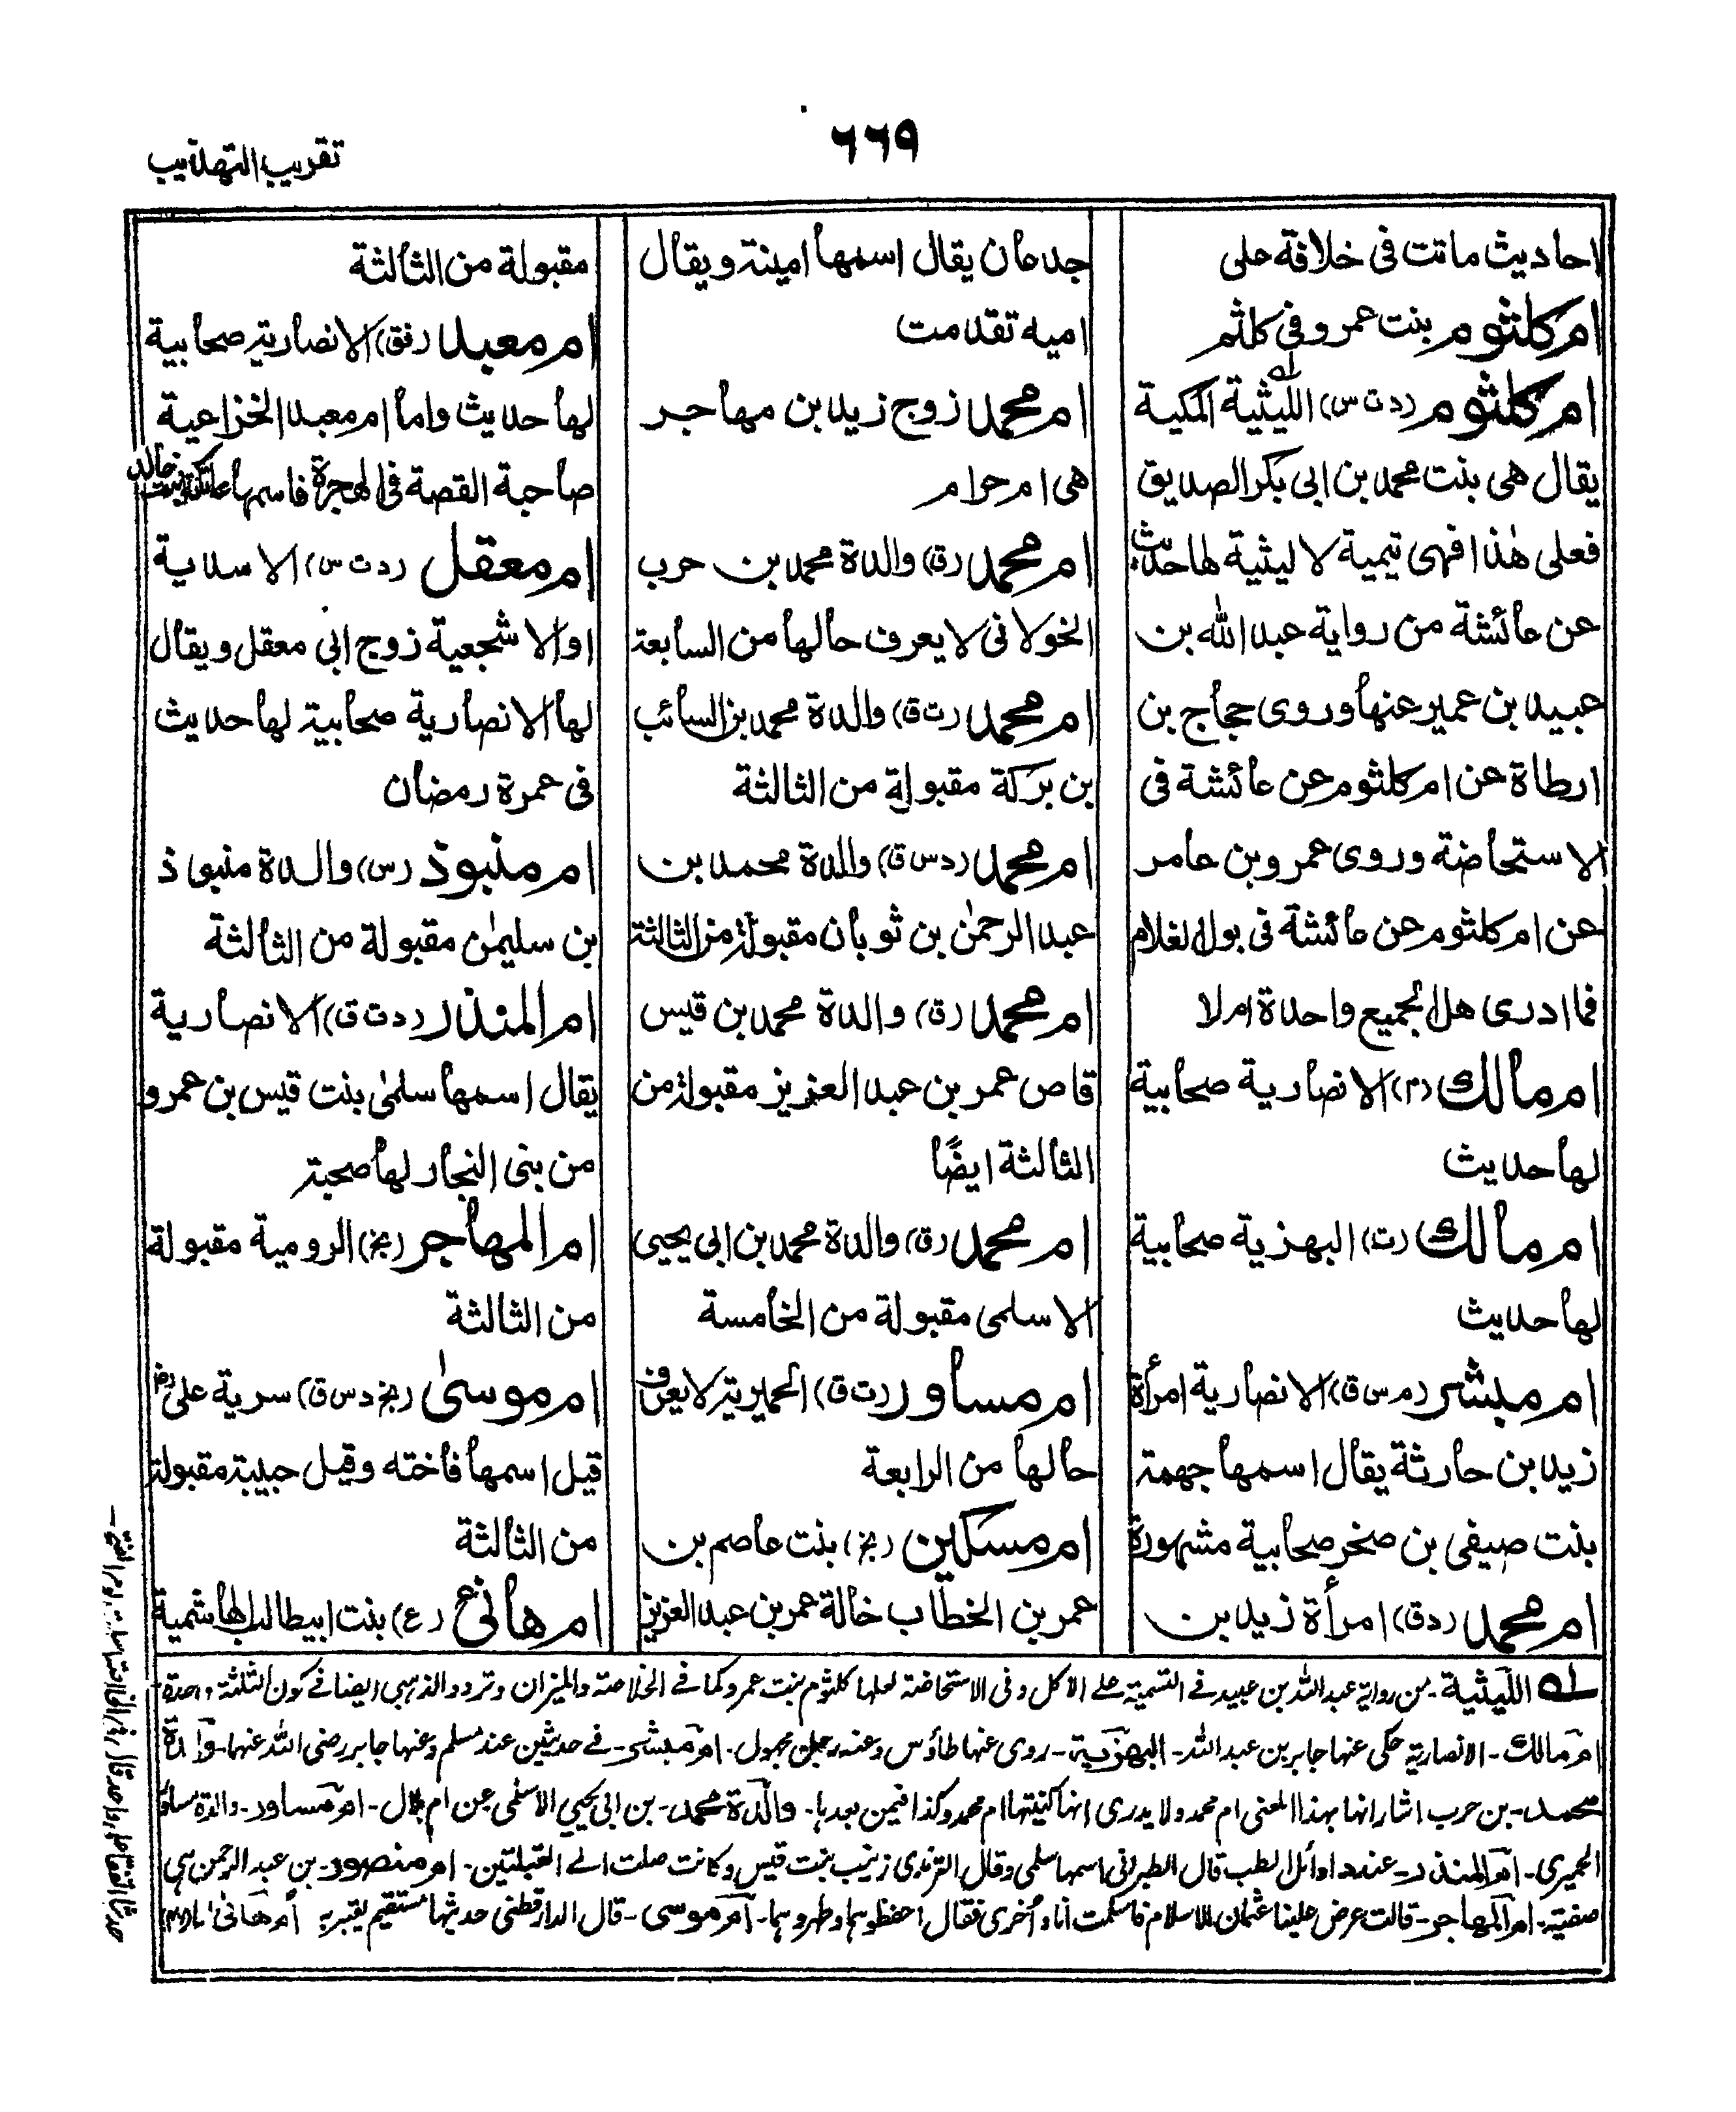 ٦٦٩
تقريب التهذيب
احاديث ماتت فى خلافة على
ام كلثوم بنت عمرو فى كلثم
ام كلثوم (د ت س) الليثية المكية
يقال هى بنت محمد بن ابى بكر الصديق
فعلى هٰذا فهى تيمية لا ليثية لها حديث
عن عائشة من رواية عبد الله بن
عبيد بن عمير عنها وروى حجاج بن
ارطاة عن ام كلثوم عن عائشة فى
الاستحاضة وروى عمرو بن عامر
عن ام كلثوم عن عائشة فى بول الغلام
فما ادرى هل الجميع واحدة ام لا
ام مالك (م) الانصارية صحابية
لها حديث
ام مالك (ت) البهزية صحابية
لها حديث
ام مبشر (م س ق) الانصارية امرأة
زيد بن حارثة يقال اسمها جهمة
بنت صيفى بن صخر صحابية مشهورة
ام محمد (د ق) امرأة زيد بن
جدعان يقال اسمها امينة ويقال
اميه تقدمت
ام محمد زوج زيد بن مهاجر
هى ام حرام
ام محمد (ق) والدة محمد بن حرب
الخولانى لا يعرف حالها من السابعة
ام محمد (ت ق) والدة محمد بن السائب
بن بركة مقبولة من الثالثة
ام محمد (د س ق) والدة محمد بن
عبد الرحمٰن بن ثوبان مقبولة من الثالثة
ام محمد (ق) والدة محمد بن قيس
قاص عمر بن عبد العزيز مقبولة من
الثالثة ايضًا
ام محمد (ق) والدة محمد بن ابى يحيى
الاسلمى مقبولة من الخامسة
ام مساور (ت ق) الحميرية لا يعرف
حالها من الرابعة
ام مسكين (بخ) بنت عاصم بن
عمر بن الخطاب خالة عمر بن عبد العزيز
مقبولة من الثالثة
ام معبد (فق) الانصارية صحابية
لها حديث واما ام معبد الخزاعية
صاحبة القصة فى الهجرة فاسمها عاتكة بنت خالد
ام معقل (د ت س) الاسدية
او الاشجعية زوج ابى معقل ويقال
لها الانصارية صحابية لها حديث
فى عمرة رمضان
ام منبوذ (س) والدة منبوذ
بن سليمٰن مقبولة من الثالثة
ام المنذر (د ت ق) الانصارية
يقال اسمها سلمى بنت قيس بن عمرو
من بنى النجار لها صحبة
ام المهاجر (بخ) الرومية مقبولة
من الثالثة
ام موسىٰ (بخ د س ق) سرية على رض
قيل اسمها فاخته وقيل حبيبة مقبولة
من الثالثة
ام هانئ (ع) بنت ابيطالب الهاشمية
له الليثية - من رواية عبد الله بن عبيد فے التسمية على الاكل وفى الاستحاضة لعلها كلثوم بنت عمرو كما فے الخلاصة والميزان وتردد الذهبى ايضا فے كون الثلثة واحدة -
ام مالك - الانصارية حكى عنها جابر بن عبد الله - البهزية - روى عنها طاؤس وعنه رجل مجهول - ام مبشر - فے حديثين عند مسلم وعنها جابر رضى الله عنهما - والدة
محمد - بن حرب اشار انها بهذا المعنى ام محمد ولا يدرى انها كنيتها ام محمد وكذا فيمن بعدها - والدة محمد - بن ابى يحيى الاسلمى عن ام بلال - ام مساور - والدة مساور
الحميرى - ام المنذر - عند د اوائل لطب قال الطبرانى اسمها سلمى وقال الترمذى زينب بنت قيس وكانت صلت الے القبلتين - ام منصور - بن عبد الرحمن هى
صفية - ام المهاجر - قالت عرض علينا عثمان الاسلام فاسلمت انا واخرى فقال احفظوهما وطهروهما - ام موسى - قال الدارقطنى حديثها مستقيم يعتبر به ام هانى